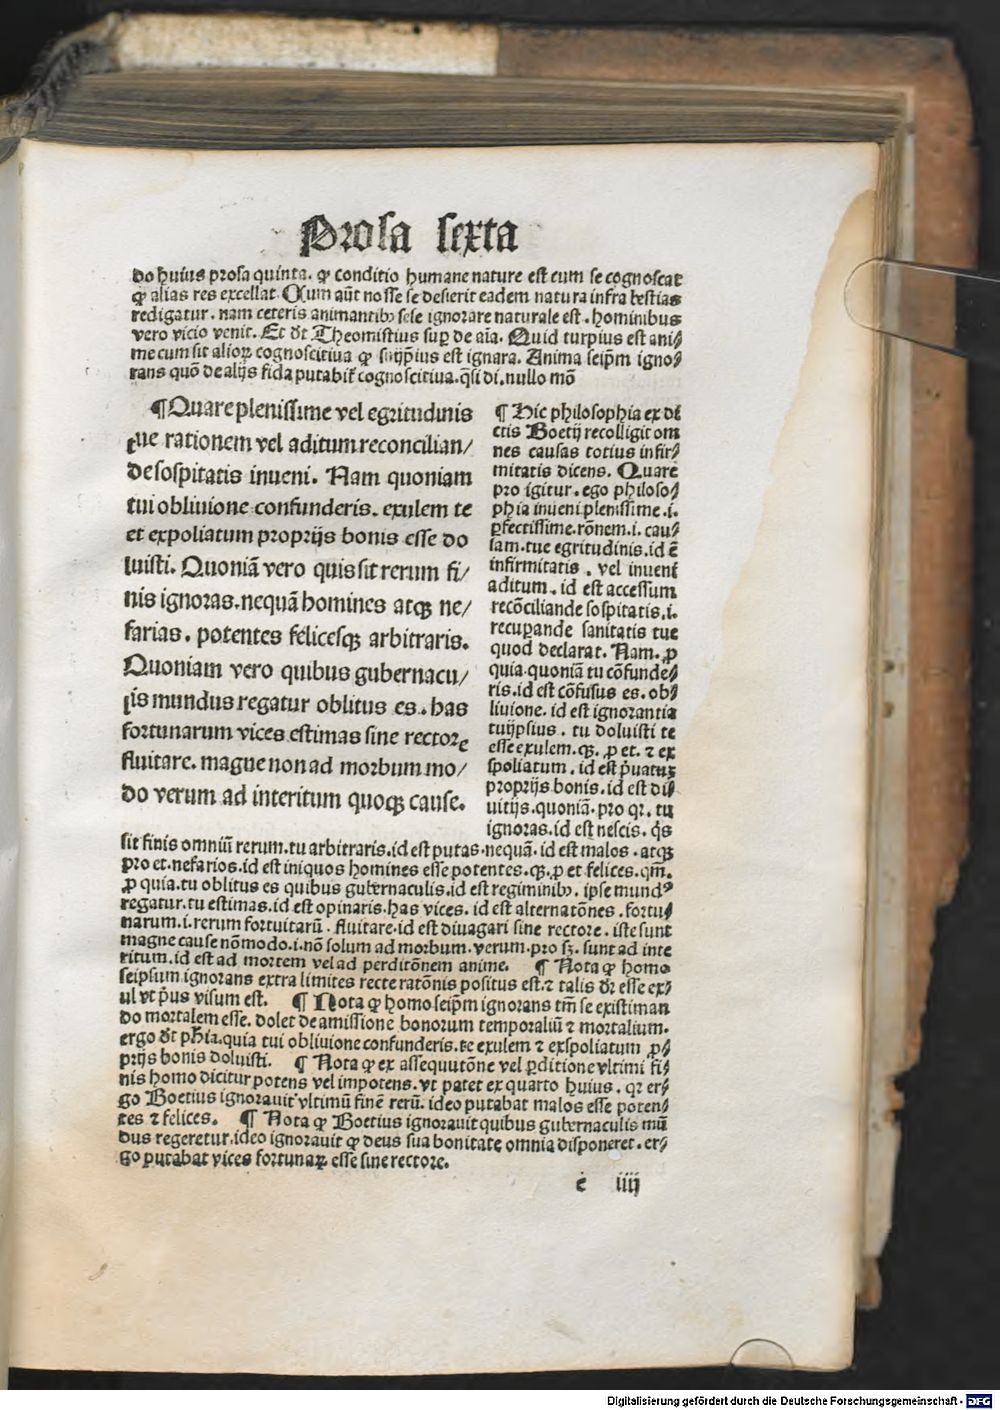 Prosa sexta
do huius prosa quinta. ꝙ conditio humane nature est cum se cognoscat
ꝙ alias res excellat. Cum aūt nosse se desierit eadem natura infra bestias
redigatur. nam ceteris animantibꝫ sese ignorare naturale est. hominibus
vero vicio venit. Et dt̄ Theomistius suꝑ de aīa. Quid turpius est ani⸗
me cum sit alioꝝ cognoscitiua ꝙ suiip̄ius est ignara. Anima seip̄m igno⸗
rans quō de alijs fida putabit̄ cognoscitiua. q̄si di. nullo mō
¶Quare plenissime vel egritudinis
tue rationem vel aditum reconcilian/
de sospitatis inueni. Nam quoniam
tui obliuione confunderis. exulem te
et expoliatum proprijs bonis esse do
luisti. Quoniā vero quis sit rerum fi/
nis ignoras. nequā homines atqꝫ ne/
farias. potentes felicesqꝫ arbitraris.
Quoniam vero quibus gubernacu/
lis mundus regatur oblitus es. has
fortunarum vices estimas sine rectore
fluitare. magne non ad morbum mo/
do verum ad interitum quoqꝫ cause.
¶ Hic philosophia ex di
ctis Boetij recolligit om
nes causas totius infir⸗
mitatis dicens. Quare
pro igitur. ego philoso⸗
phia inueni plenissime .i.
ꝑfectissime. rōnem .i. cau⸗
sam. tue egritudinis. id ē
infirmitatis. vel inueni
aditum. id est accessum
recōciliande sospitatis .i.
recuꝑande sanitatis tue
quod declarat. Nam. ꝓ
quia. quoniā tu cōfunde⸗
ris. id est cōfusus es. ob⸗
liuione. id est ignorantia
tuijpsius. tu doluisti te
esse exulem. qꝫ. ꝓ et. ⁊ ex
spoliatum. id est p̄uatuꝫ
proprijs bonis. id est di⸗
uitijs. quoniā. pro qꝛ. tu
ignoras. id est nescis. q̇s
sit finis omniū rerum. tu arbitraris. id est putas. nequā. id est malos. atqꝫ
pro et. nefarios. id est iniquos homines esse potentes. qꝫ. ꝓ et felices. qm̄.
ꝓ quia. tu oblitus es quibus gubernaculis. id est regiminibꝫ. ipse mundꝰ
regatur. tu estimas. id est opinaris. has vices. id est alternatōnes. fortu⸗
narum .i. rerum fortuitarū. fluitare. id est diuagari sine rectore. iste sunt
magne cause nōmodo .i. nō solum ad morbum. verum. pro sꝫ. sunt ad inte
ritum. id est ad mortem vel ad perditōnem anime. ¶ Nota ꝙ homo
seipsum ignorans extra limites recte ratōnis positus est. ⁊ talis dr̄ esse ex⸗
ul vt p̄us visum est. ¶ Nota ꝙ homo seip̄m ignorans tm̄ se existiman
do mortalem esse. dolet de amissione bonorum temporaliū ⁊ mortalium.
ergo dt̄ ph̄ia. quia tui obliuione confunderis. te exulem ⁊ exspoliatum ꝓ⸗
prijs bonis doluisti. ¶ Nota ꝙ ex assequutōne vel ꝑditione vltimi fi⸗
nis homo dicitur potens vel impotens. vt patet ex quarto huius. qꝛ er⸗
go Boetius ignorauit vltimū finē rerū. ideo putabat malos esse poten⸗
tes ⁊ felices. ¶ Nota ꝙ Boetius ignorauit quibus gubernaculis mū
dus regeretur. ideo ignorauit ꝙ deus sua bonitate omnia disponeret. er⸗
go putabat vices fortunaꝝ esse sine rectore.
e iiij
Digitalisierung gefördert durch die Deutsche Forschungsgemeinschaft - DFG